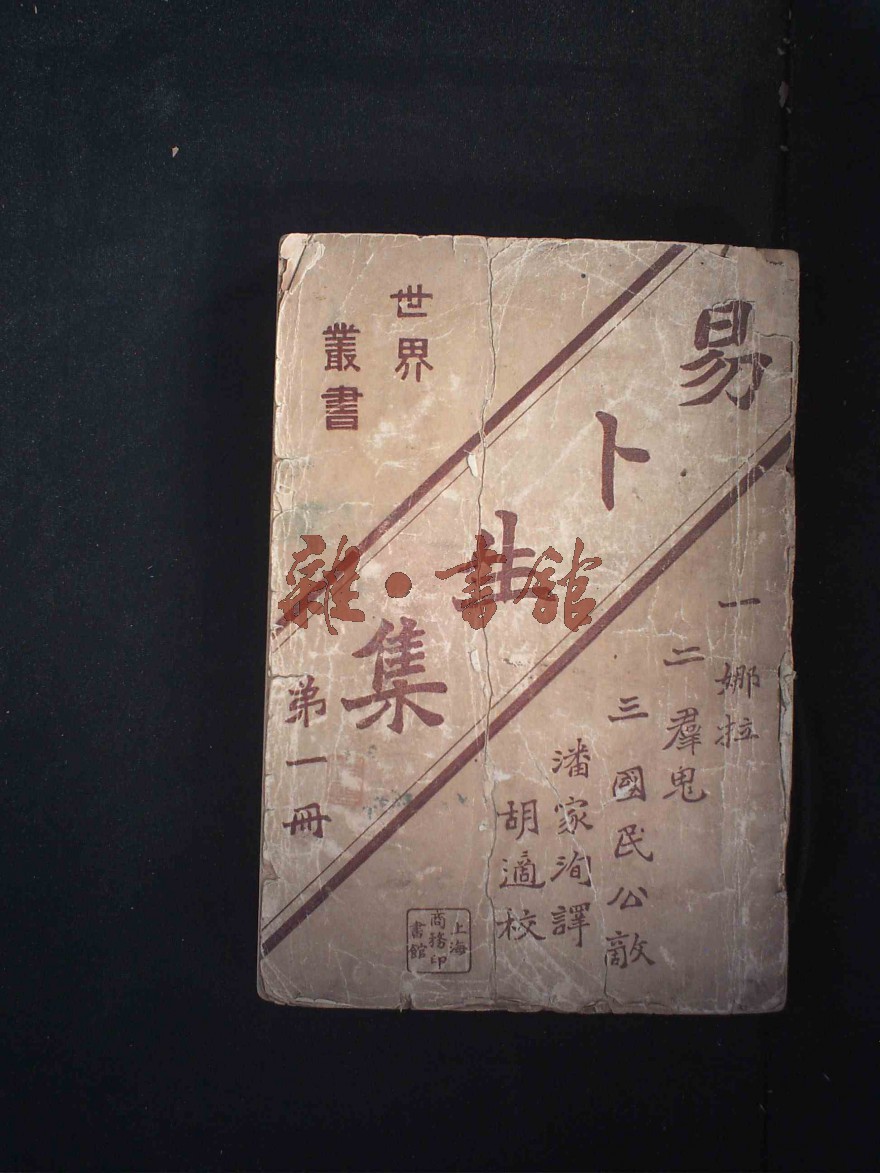 易卜生集
一 娜拉
二 羣鬼
三 國民公敵
潘家洵譯
胡適校
世界
叢書
第一冊
上海
商務印
書館
雜·書館